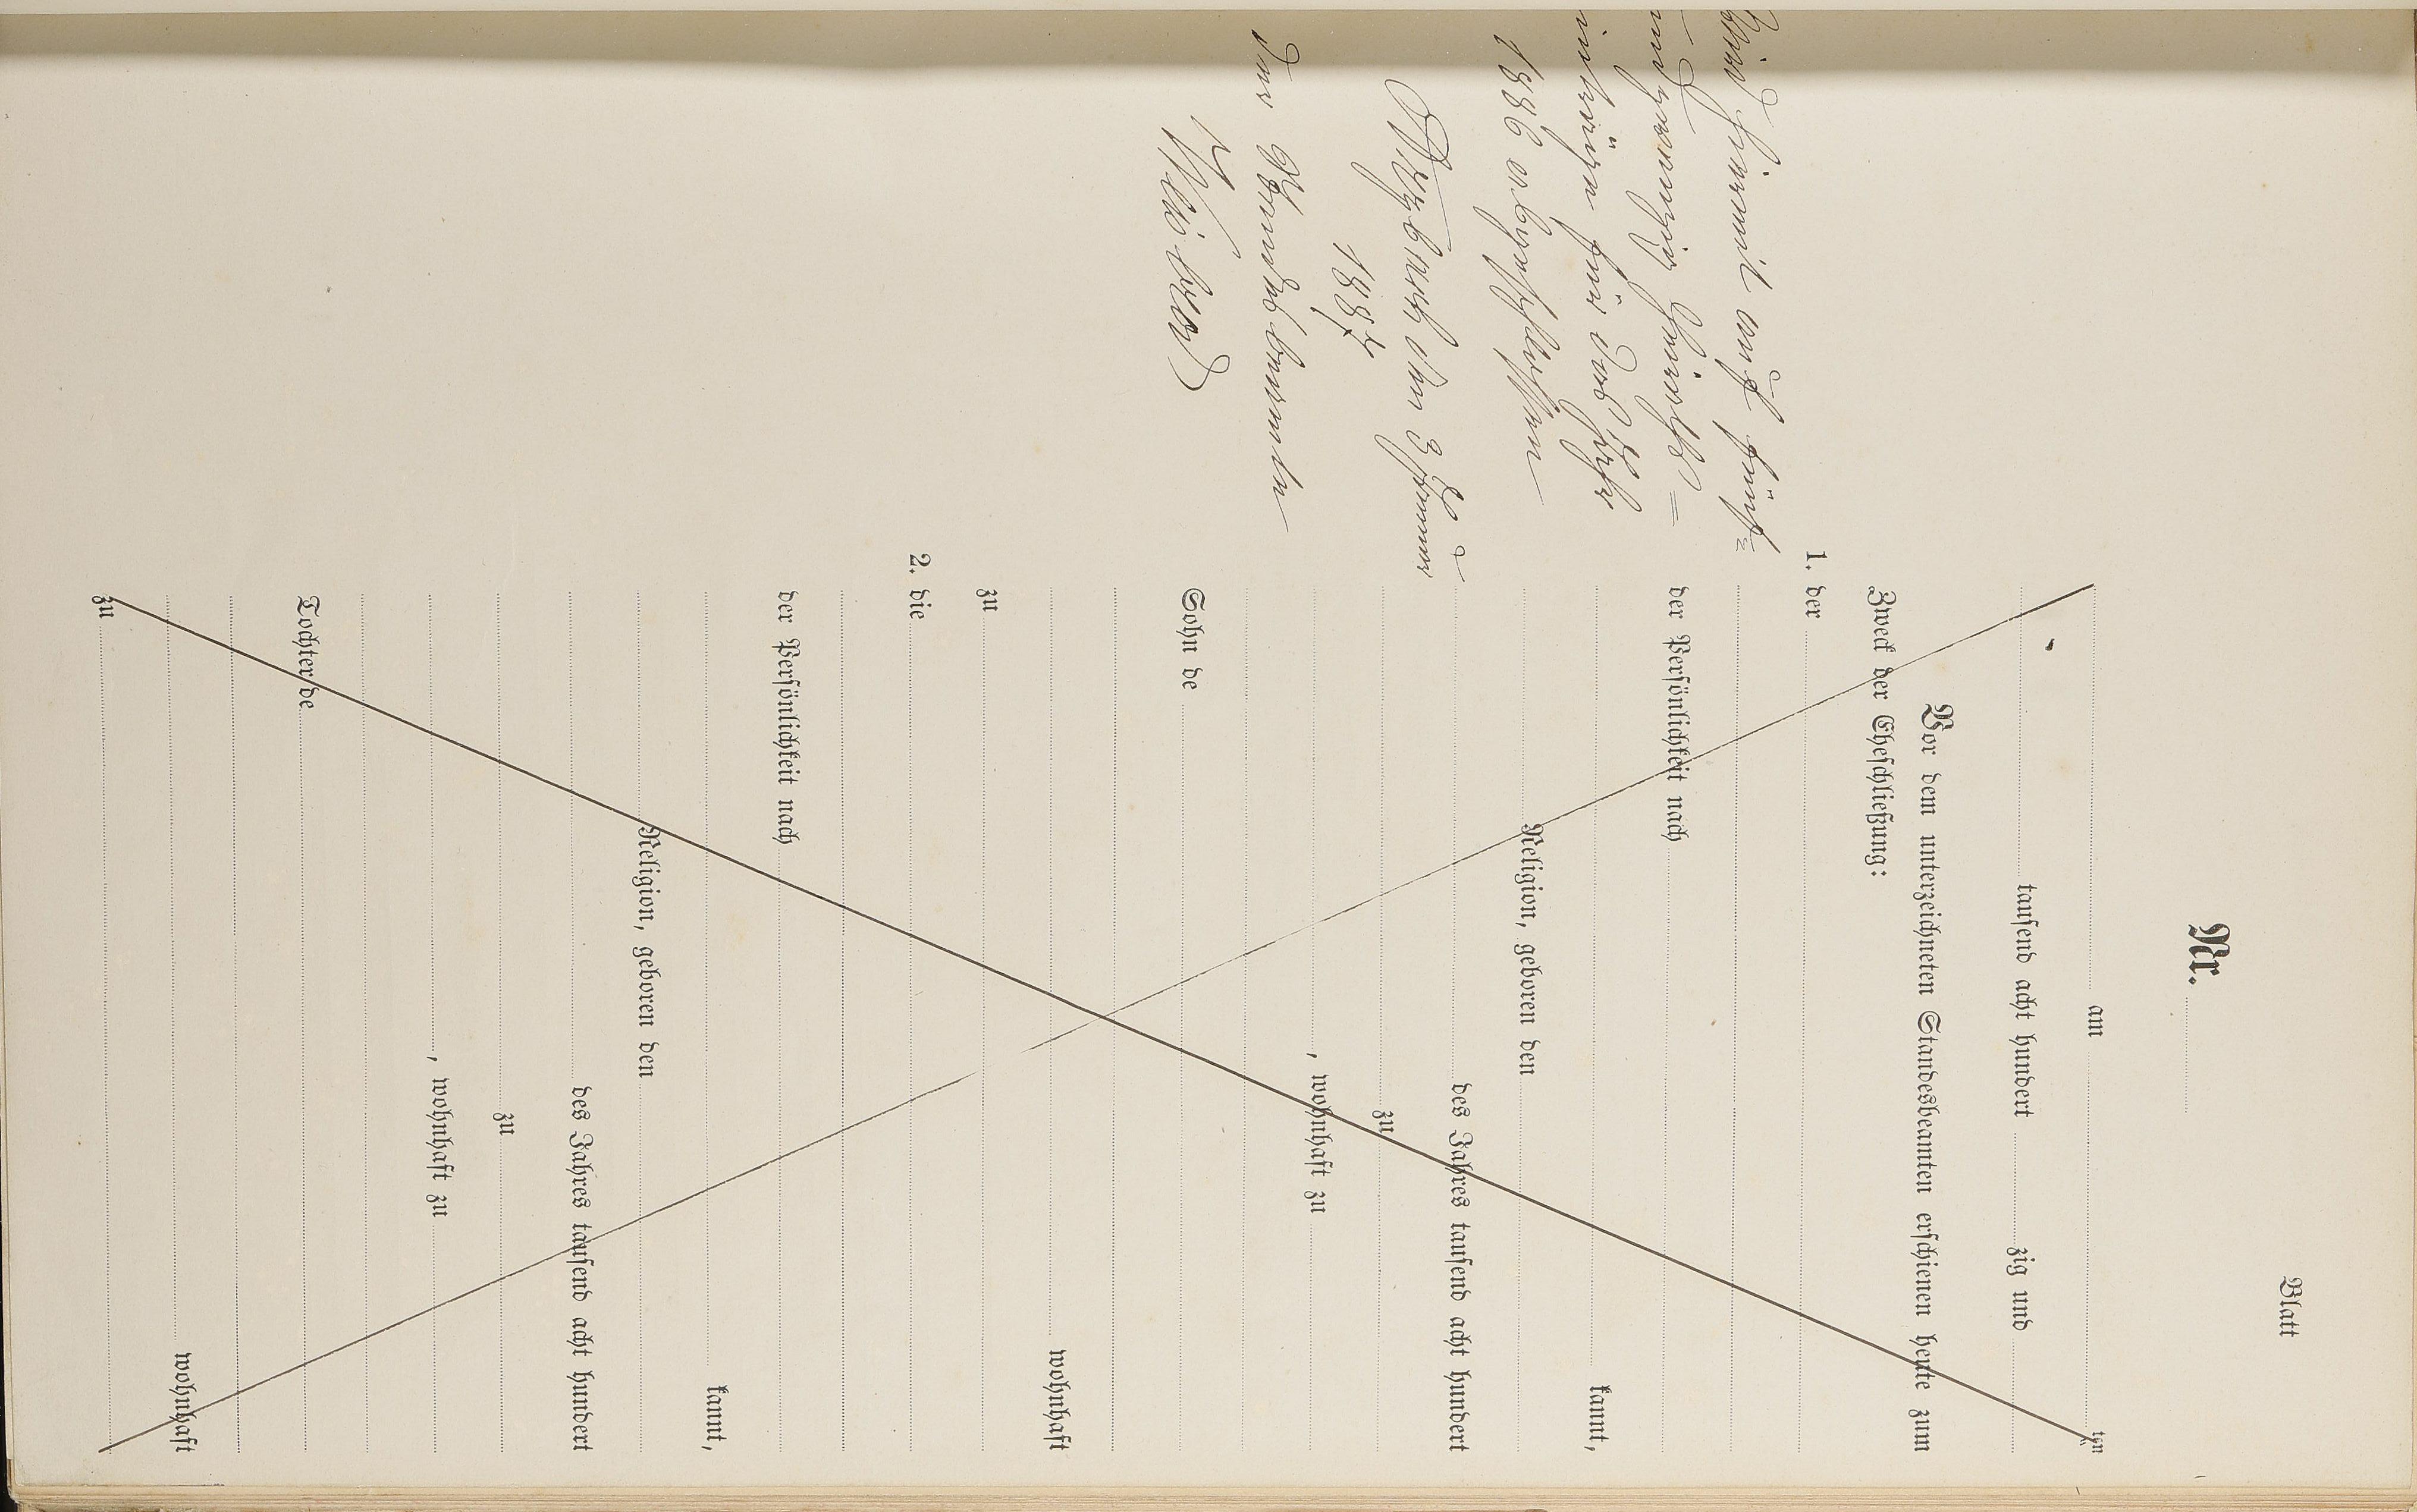 Blatt
Nr.
am ten
tausend acht hundert zig und
Vor dem unterzeichneten Standesbeamten erschienen heute zum
Zweck der Eheschließung:
1. der
der Persönlichkeit nach
kannt,
Religion, geboren den
des Jahres tausend acht hundert
zu
, wohnhaft zu
Sohn de
wohnhaft
zu
2. die
der Persönlichkeit nach
kannt,
Religion, geboren den
des Jahres tausend acht hundert
zu
, wohnhaft zu
Tochter de
wohnhaft
zu
hiermit auf fünf=
Heiraths=
für das Jahr
1886 abgeschlossen
den 3. Januar
1887
Der Standesbeamte